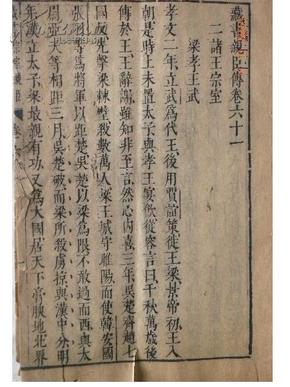 藏書親臣傳卷六十一
二諸王宗室
梁孝王武
孝文二年立武爲代王後用賈誼策徙王梁景帝初王入
朝是時上未置太子與孝王宴飲從容言曰千秋萬歲後
傳於王王辭謝雖知非至言然心內喜三年吳楚齊趙七
國反先擊梁棘壁殺數萬人梁王城守睢陽而使韓安國
張羽等爲將軍以距吳楚吳楚以梁爲限不敢過而西與太
尉亞夫等相距三月吳楚破而梁所殺虜掠與漢中分明
年漢立太子梁最親有功又爲大國居天下膏腴地北界